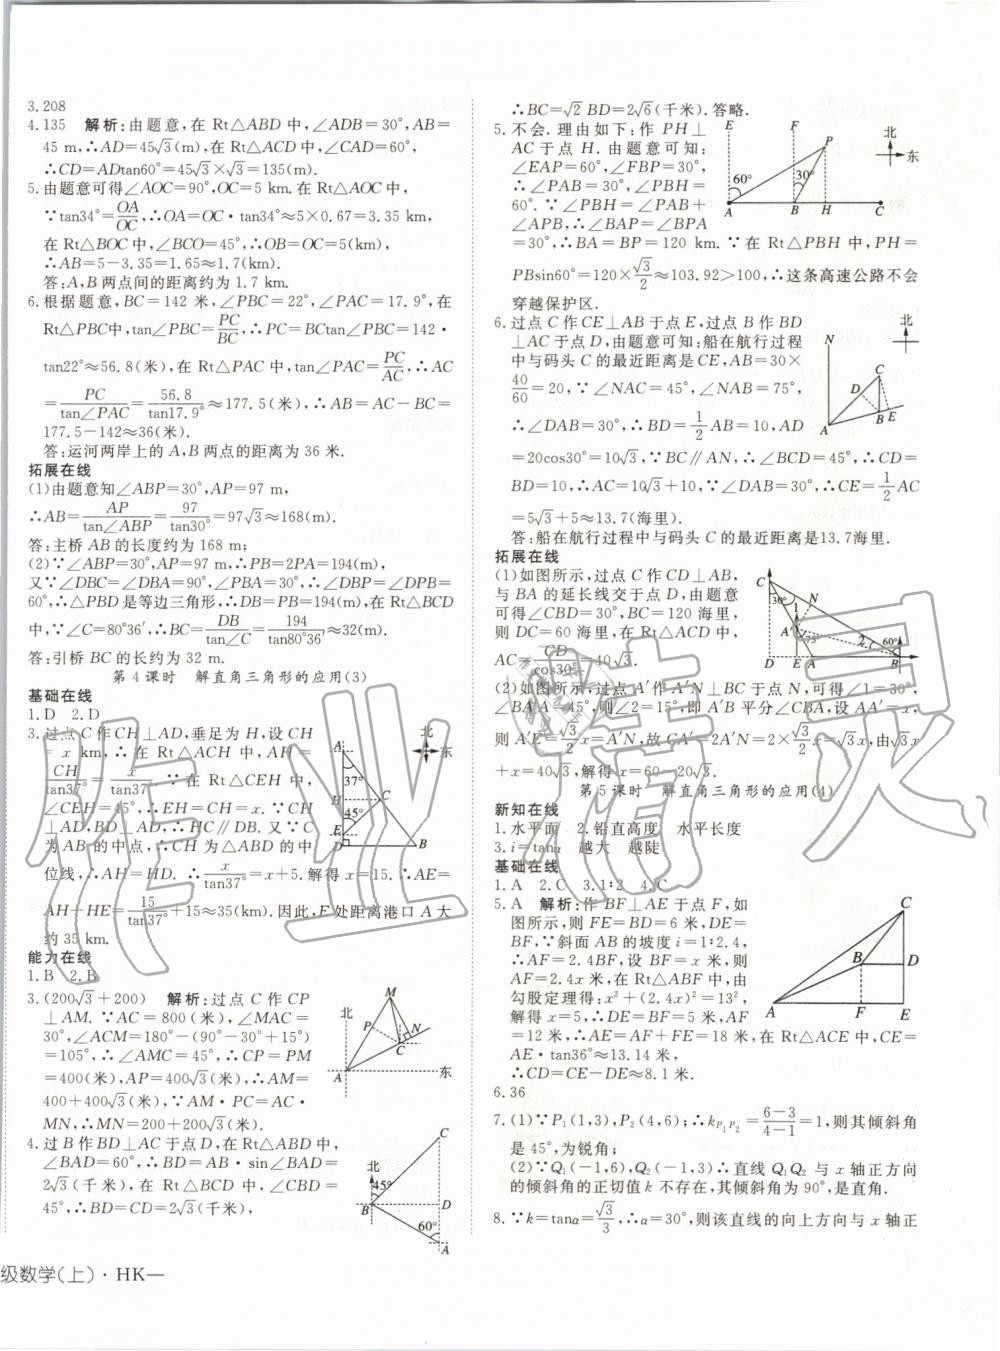 3.208
4.135 解析:由题意,在 Rt△ABD 中,∠ADB=30°,AB=
45 m,∴AD=45√3(m),在 Rt△ACD 中,∠CAD=60°,
∴CD=ADtan60°=45√3×√3=135(m).
5.由题意可得∠AOC=90°,OC=5 km.在 Rt△AOC 中,
∵tan34°=OA/OC,∴OA=OC·tan34°≈5×0.67=3.35 km,
在 Rt△BOC 中,∠BCO=45°,∴OB=OC=5(km),
∴AB=5−3.35=1.65≈1.7(km).
答:A,B 两点间的距离约为 1.7 km.
6.根据题意,BC=142 米,∠PBC=22°,∠PAC=17.9°,在
Rt△PBC中,tan∠PBC=PC/BC,∴PC=BCtan∠PBC=142·
tan22°≈56.8(米),在 Rt△PAC 中,tan∠PAC=PC/AC,∴AC
=PC/tan∠PAC=56.8/tan17.9°≈177.5(米),∴AB=AC−BC=
177.5−142≈36(米).
答:运河两岸上的 A,B 两点的距离为 36 米.
拓展在线
(1)由题意知∠ABP=30°,AP=97 m,
∴AB=AP/tan∠ABP=97/tan30°=97√3≈168(m).
答:主桥 AB 的长度约为 168 m;
(2)∵∠ABP=30°,AP=97 m,∴PB=2PA=194(m),
又∵∠DBC=∠DBA=90°,∠PBA=30°,∴∠DBP=∠DPB=
60°,∴△PBD 是等边三角形,∴DB=PB=194(m),在 Rt△BCD
中,∵∠C=80°36′,∴BC=DB/tan∠C=194/tan80°36′≈32(m).
答:引桥 BC 的长约为 32 m.
第 4 课时 解直角三角形的应用(3)
基础在线
1.D 2.D
3.过点 C 作 CH⊥AD,垂足为 H,设 CH
=x km,∴在 Rt△ACH 中,AH=
CH/tan37°=x/tan37°.∵在 Rt△CEH 中,
∠CEH=45°,∴EH=CH=x.∵CH
⊥AD,BD⊥AD,∴HC∥DB.又∵C
为 AB 的中点,∴CH 为△ABD 的中
位线,∴AH=HD.∴x/tan37°=x+5.解得 x=15.∴AE=
AH+HE=15/tan37°+15≈35(km).因此,E 处距离港口 A 大
约 35 km.
能力在线
1.B 2.B
3.(200√3+200) 解析:过点 C 作 CP
⊥AM.∵AC=800(米),∠MAC=
30°,∠ACM=180°−(90°−30°+15°)
=105°,∴∠AMC=45°,∴CP=PM
=400(米),AP=400√3(米),∴AM=
400+400√3(米).∵AM·PC=AC·
MN,∴MN=200+200√3(米).
4.过 B 作 BD⊥AC 于点 D,在 Rt△ABD 中,
∠BAD=60°,∴BD=AB·sin∠BAD=
2√3(千米),在 Rt△BCD 中,∠CBD=
45°,∴BD=CD=2√3(千米),
A 北 东 37° H C 45° E D B
北 M P C A 东
C 北 45° B D 60° A
级数学(上)·HK—
∴BC=√2 BD=2√6(千米).答略.
5.不会.理由如下:作 PH⊥
AC于点 H.由题意可知:
∠EAP=60°,∠FBP=30°,
∴∠PAB=30°,∠PBH=
60°.∵∠PBH=∠PAB+
∠APB,∴∠BAP=∠BPA
=30°,∴BA=BP=120 km.∵在 Rt△PBH 中,PH=
PBsin60°=120×√3/2≈103.92>100,∴这条高速公路不会
穿越保护区.
E F P 北 东 60° 30° A B H C
6.过点 C 作CE⊥AB于点 E,过点 B 作 BD
⊥AC于点 D,由题意可知:船在航行过程
中与码头 C 的最近距离是CE,AB=30×
40/60=20,∵∠NAC=45°,∠NAB=75°,
∴∠DAB=30°,∴BD=1/2AB=10,AD
=20cos30°=10√3,∵BC∥AN,∴∠BCD=45°,∴CD=
BD=10,∴AC=10√3+10,∵∠DAB=30°,∴CE=1/2AC
=5√3+5≈13.7(海里).
答:船在航行过程中与码头 C的最近距离是13.7海里.
N 北 C D B E A
拓展在线
(1)如图所示,过点 C 作 CD⊥AB,
与 BA 的延长线交于点 D,由题意
可得∠CBD=30°,BC=120 海里,
则 DC=60 海里,在 Rt△DCA 中,
AC=CD/cos30°=40√3.
(2)如图所示,过点 A′作 A′N⊥BC于点 N,可得∠1=30°,
∠BA′A=45°,则∠2=15°,即 A′B 平分∠CBA,设 AA′=x,
则 A′E=√3/2x=A′N,故 CA′=2A′N=2×√3/2x=√3x,由√3x
+x=40√3,解得 x=60−20√3.
C 30° N A′ 75° 2 60° D E A B
第 5 课时 解直角三角形的应用(4)
新知在线
1.水平面 2.铅直高度 水平长度
3.i=tanα 越大 越陡
基础在线
1.A 2.C 3.1∶2 4.C
5.A 解析:作 BF⊥AE 于点 F,如
图所示,则 FE=BD=6 米,DE=
BF,∵斜面 AB 的坡度 i=1∶2.4,
∴AF=2.4BF,设 BF=x 米,则
AF=2.4x 米,在 Rt△ABF 中,由
勾股定理得:x²+(2.4x)²=13²,
解得 x=5,∴DE=BF=5 米,AF
=12 米,∴AE=AF+FE=18 米,在 Rt△ACE 中,CE=
AE·tan36°≈13.14 米,
∴CD=CE−DE≈8.1 米.
C B D A F E
6.36
7.(1)∵P₁(1,3),P₂(4,6);∴k_P₁P₂=(6−3)/(4−1)=1,则其倾斜角
是 45°,为锐角;
(2)∵Q₁(−1,6),Q₂(−1,3)∴直线 Q₁Q₂ 与 x 轴正方向
的倾斜角的正切值 k 不存在,其倾斜角为 90°,是直角.
8.∵k=tanα=√3/3,∴α=30°,则该直线的向上方向与 x 轴正
作业精灵